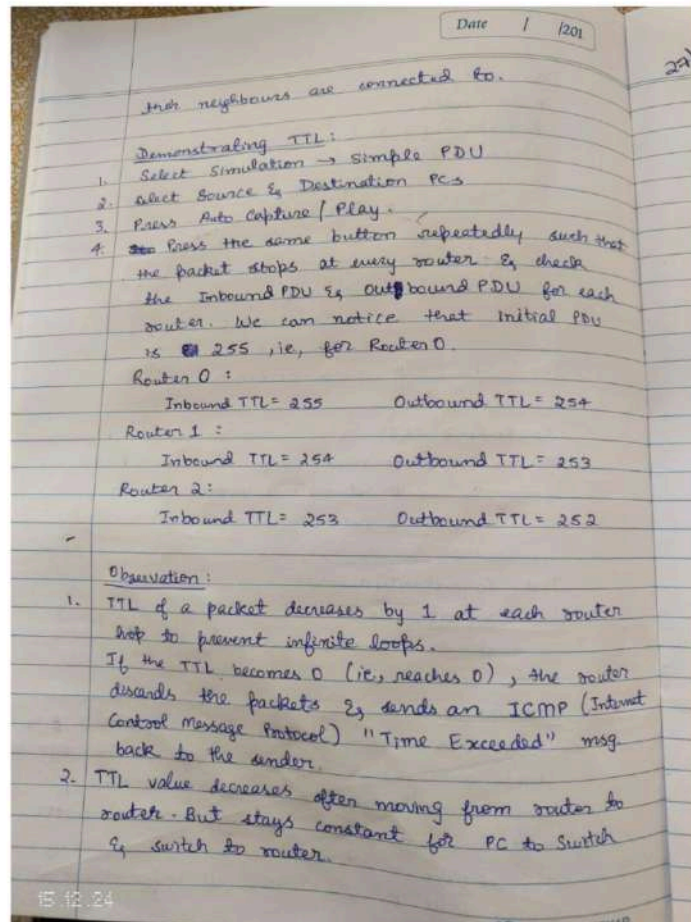 Date / /201
27
their neighbours are connected to.
Demonstrating TTL:
1. Select Simulation → Simple PDU
2. Select Source & Destination PCs
3. Press Auto Capture / Play.
4. Press the same button repeatedly such that
the packet stops at every router & check
the Inbound PDU & Outbound PDU for each
router. We can notice that initial PDU
is 255, ie, for Router 0.
Router 0 :
Inbound TTL = 255 Outbound TTL = 254
Router 1 :
Inbound TTL = 254 Outbound TTL = 253
Router 2:
Inbound TTL = 253 Outbound TTL = 252
Observation :
1. TTL of a packet decreases by 1 at each router
hop to prevent infinite loops.
If the TTL becomes 0 (ie, reaches 0), the router
discards the packets & sends an ICMP (Internet
Control Message Protocol) "Time Exceeded" msg.
back to the sender.
2. TTL value decreases after moving from router to
router. But stays constant for PC to Switch
& switch to router.
15.12.24